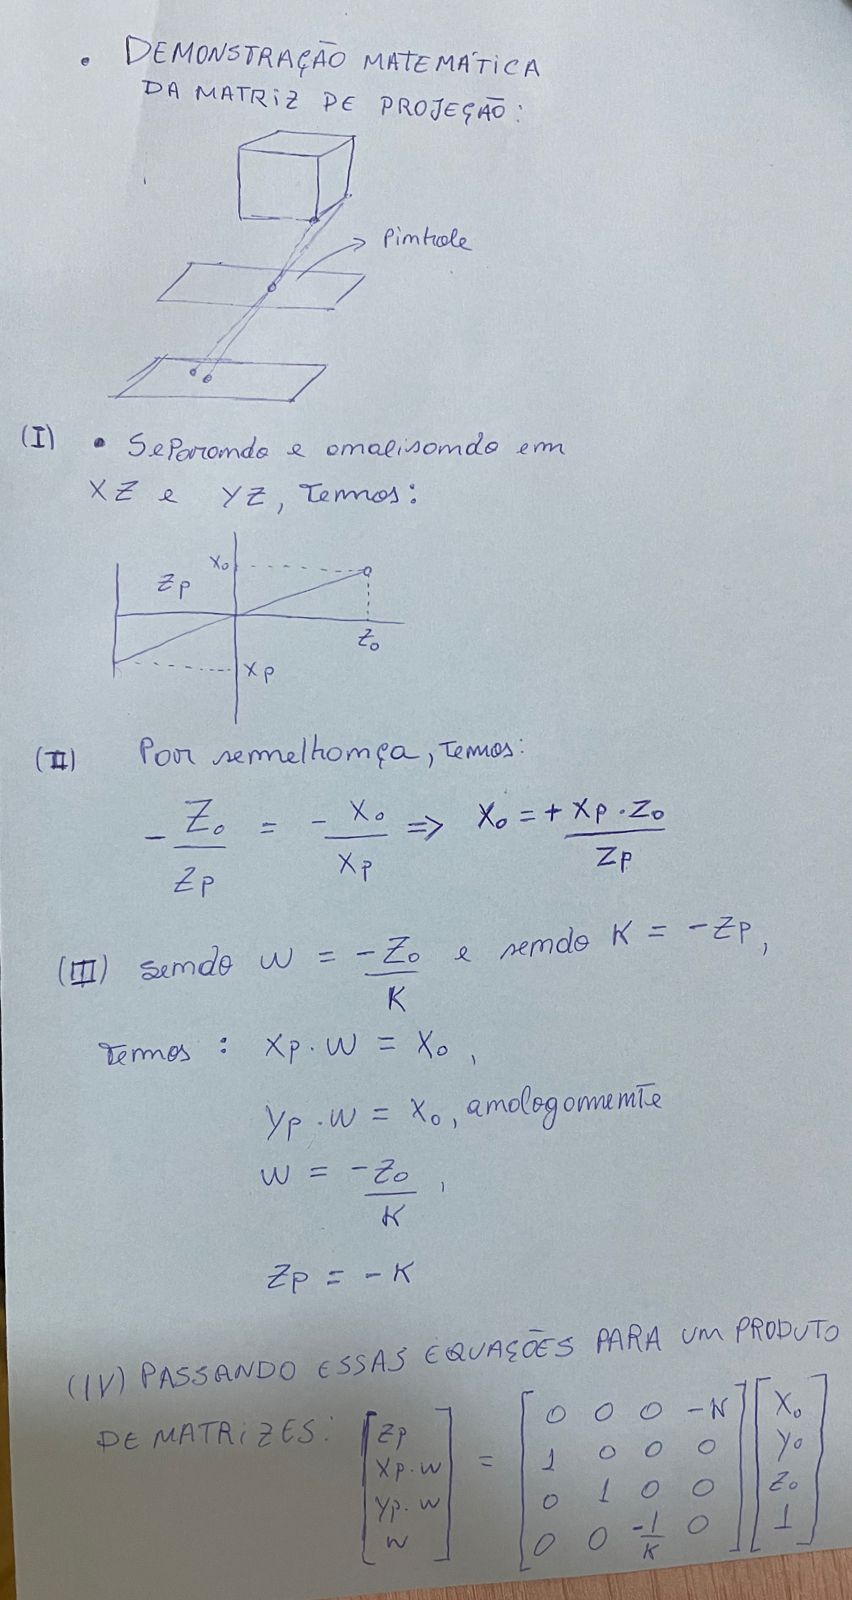 • DEMONSTRAÇÃO MATEMÁTICA
DA MATRIZ DE PROJEÇÃO:
Pinhole
(I) • Separando e analisando em
XZ e YZ, temos:
Zp
X₀
Z₀
Xp
(II) Por semelhança, temos:
- Z₀/Zp = - X₀/Xp => X₀ = + Xp · Z₀/Zp
(III) sendo W = -Z₀/K e sendo K = -Zp,
temos: Xp · W = X₀,
Yp · W = X₀, analogamente
W = -Z₀/K,
Zp = - K
(IV) PASSANDO ESSAS EQUAÇÕES PARA UM PRODUTO
DE MATRIZES: [Zp; Xp·w; Yp·w; w] = [0 0 0 -K; 1 0 0 0; 0 1 0 0; 0 0 -1/K 0] [X₀; Y₀; Z₀; 1]